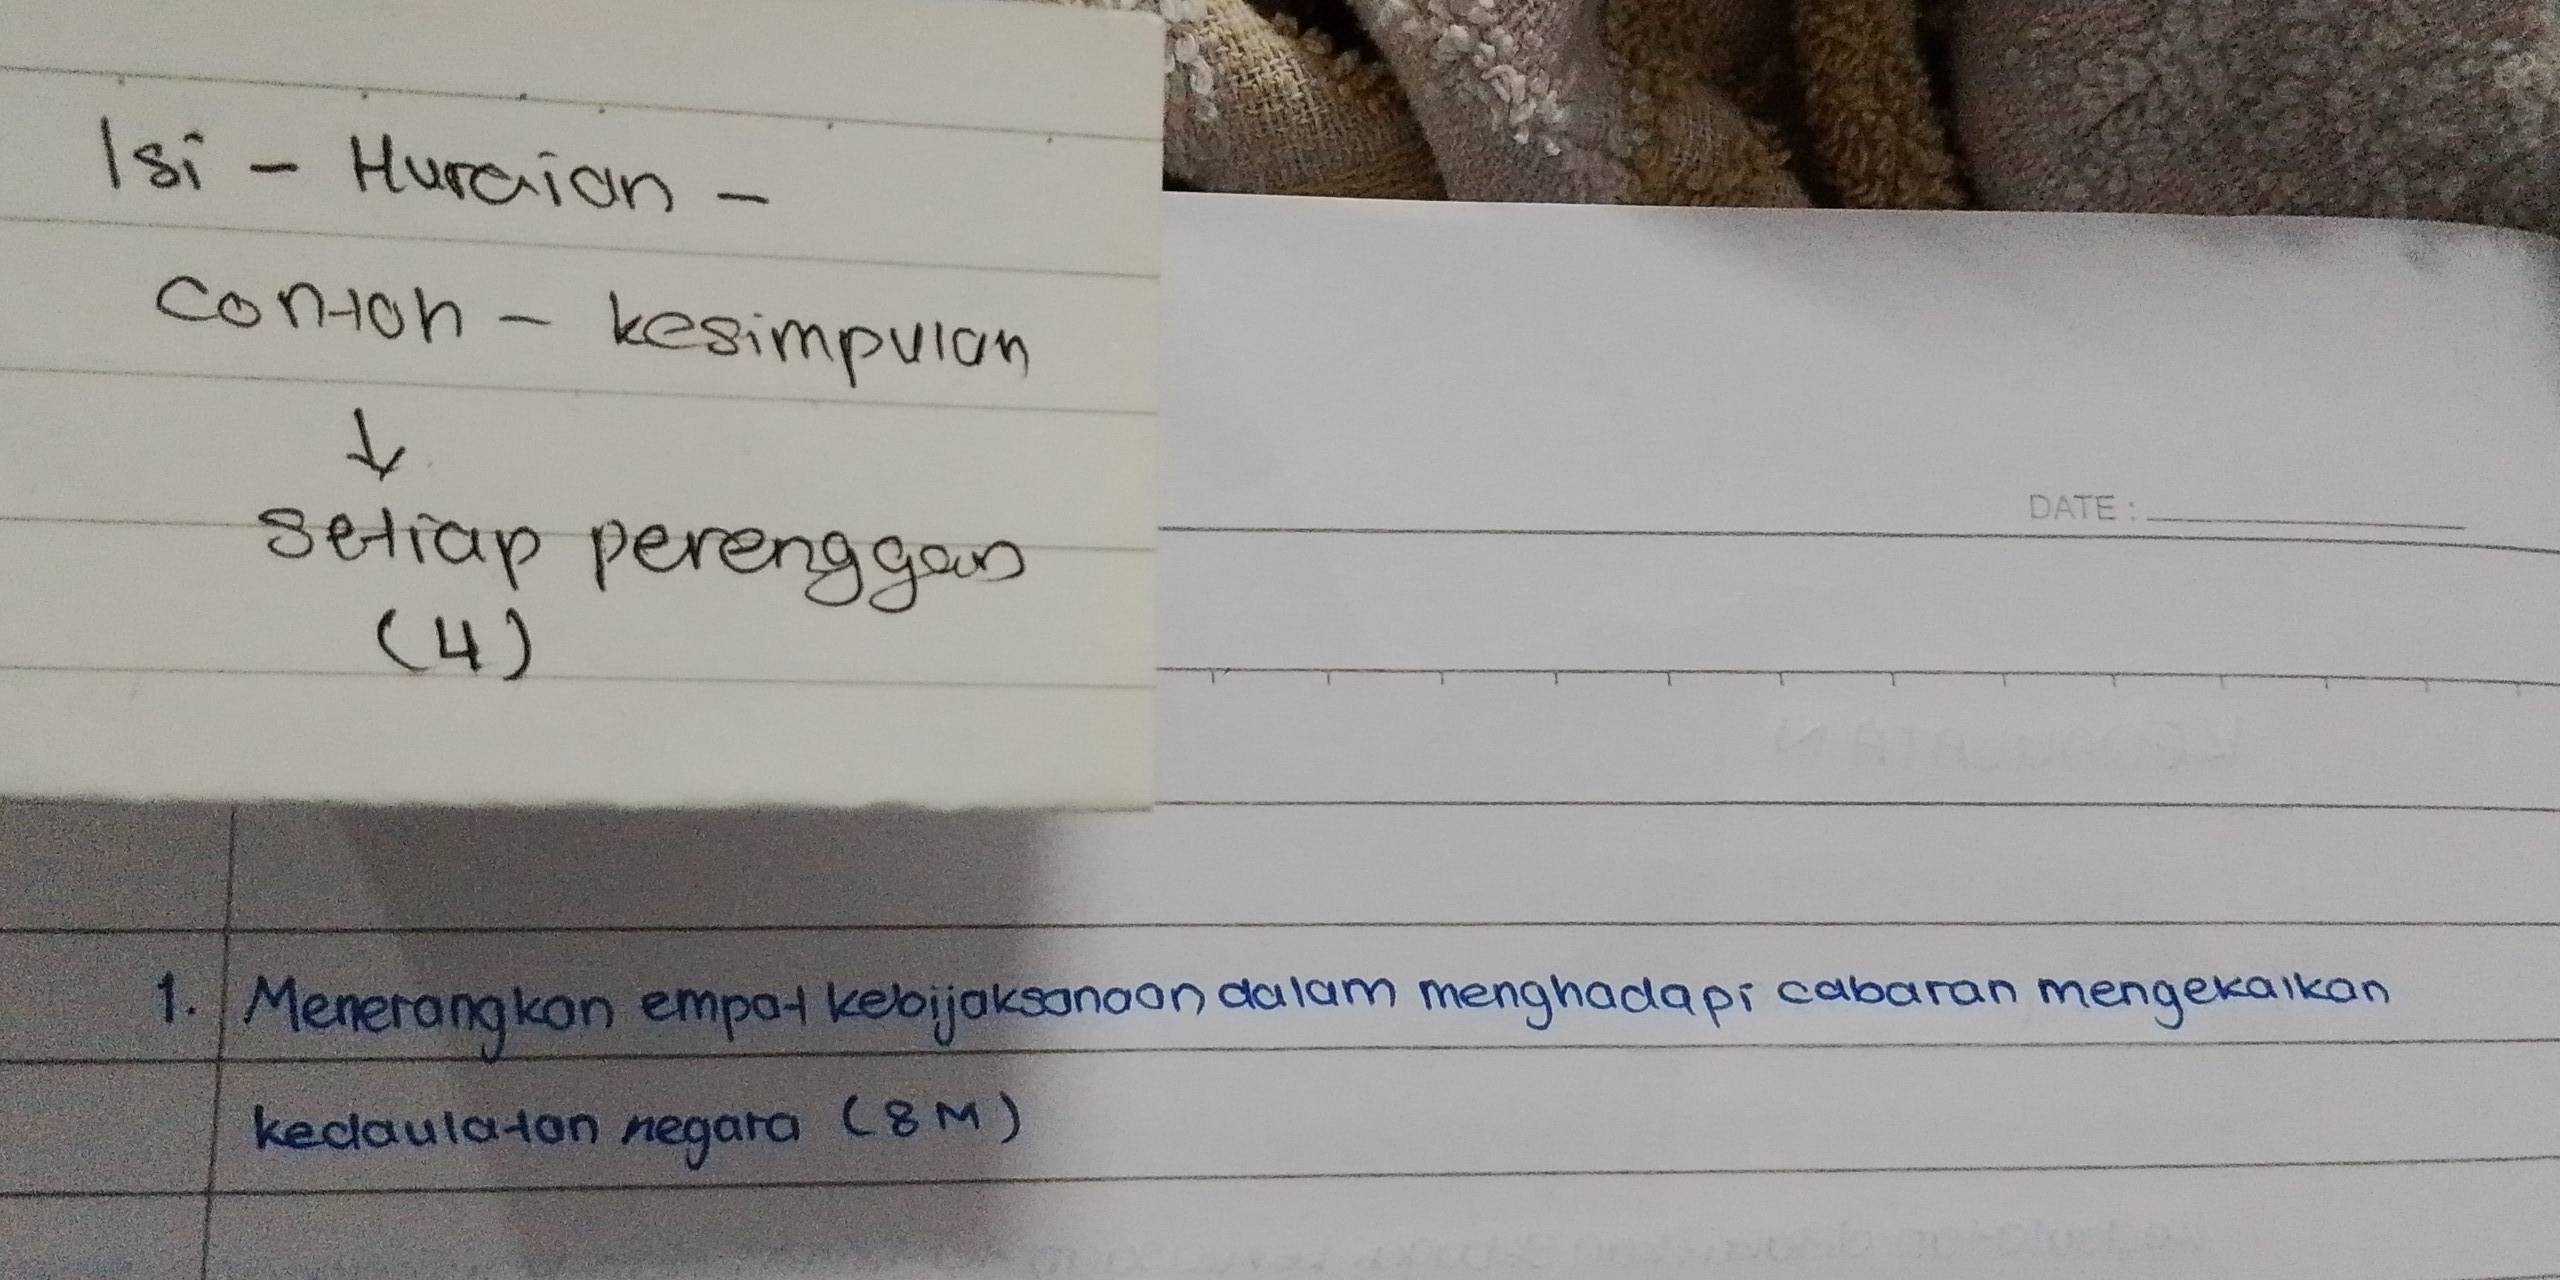 Isi - Huraian -
Contoh - kesimpulan
↓
setiap perenggan
(4)
DATE :
1. Menerangkan empat kebijaksanaan dalam menghadapi cabaran mengekalkan
kedaulatan negara (8M)